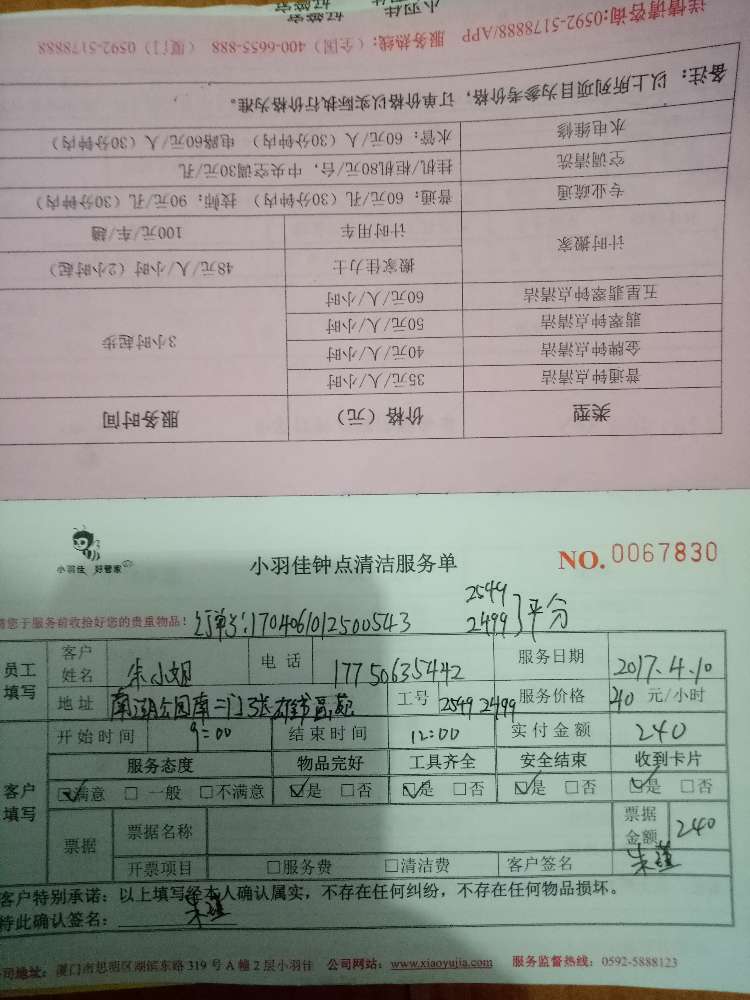 类型 价格（元） 服务时间
普通钟点清洁 35元/人/小时 3小时起步
金牌钟点清洁 40元/人/小时
翡翠钟点清洁 50元/人/小时
五星翡翠钟点清洁 60元/人/小时
计时搬家 搬家佳力士 48元/人/小时（2小时起）
计时用车 100元/车/趟
专业疏通 普通：60元/孔（30分钟内） 技师：90元/孔（30分钟内）
空调清洗 挂机/柜机80元/台，中央空调30元/孔
水电维修 水管：60元/人（30分钟内） 电路60元/人（30分钟内）
备注：以上所列项目为参考价格，订单价格以实际执行价格为准。
详情请咨询:0592-5178888/APP 服务热线:（全国）400-6655-888 （厦门）0592-5178888
小羽佳 好管家
小羽佳钟点清洁服务单 NO. 0067830
请您于服务前收拾好您的贵重物品！ 订单号:1704061012500543 2549 2499 平分
员工填写 客户姓名 朱小姐 电话 17750635442 服务日期 2017.4.10
地址 南湖公园南二门 工号 2549 2499 服务价格 40 元/小时
开始时间 9:00 结束时间 12:00 实付金额 240
客户填写 服务态度 物品完好 工具齐全 安全结束 收到卡片
☑满意 □一般 □不满意 ☑是 □否 ☑是 □否 ☑是 □否 ☑是 □否
票据 票据名称 票据金额 240
开票项目 □服务费 □清洁费 客户签名 朱瑾
客户特别承诺：以上填写经本人确认属实，不存在任何纠纷，不存在任何物品损坏。
特此确认签名： 朱瑾
公司地址：厦门市思明区湖滨东路319号A幢2层小羽佳 公司网站：www.xiaoyujia.com 服务监督热线：0592-5888123